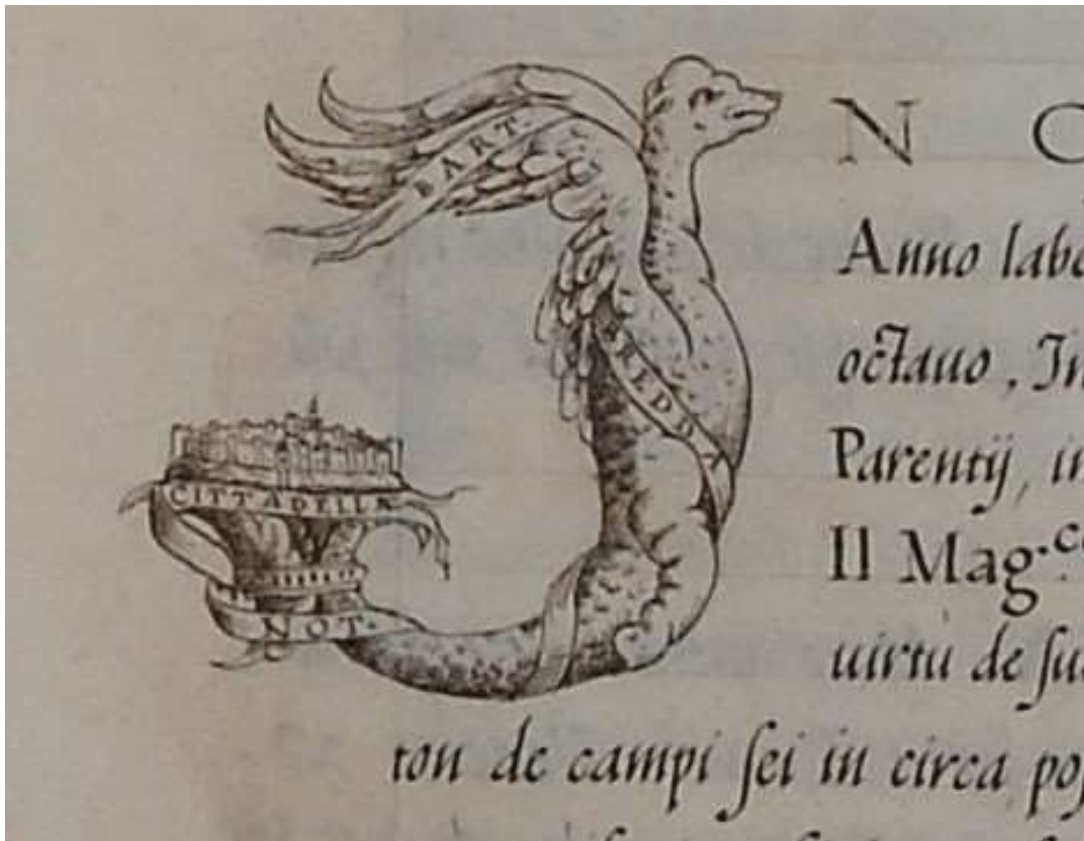 BART.
BREDDA
CITTADELLA
NOT.
N
Anno
octauo, In
Parentij, in
Il Mag.co
uirtù de
ton de campi sei in circa